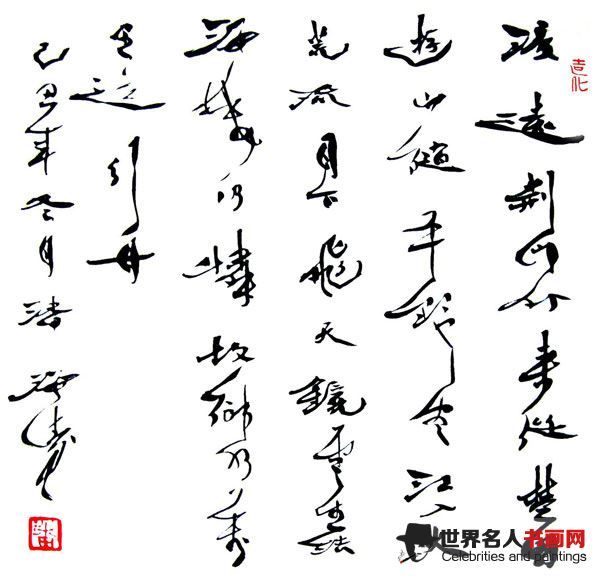 渡遠荆门外来從楚国
遊山隨平野尽江入大
荒流月下飛天鏡雲生结
海楼仍憐故鄉水萬
里送行舟
己丑年冬月
造化
世界名人书画网
Celebrities and paintings